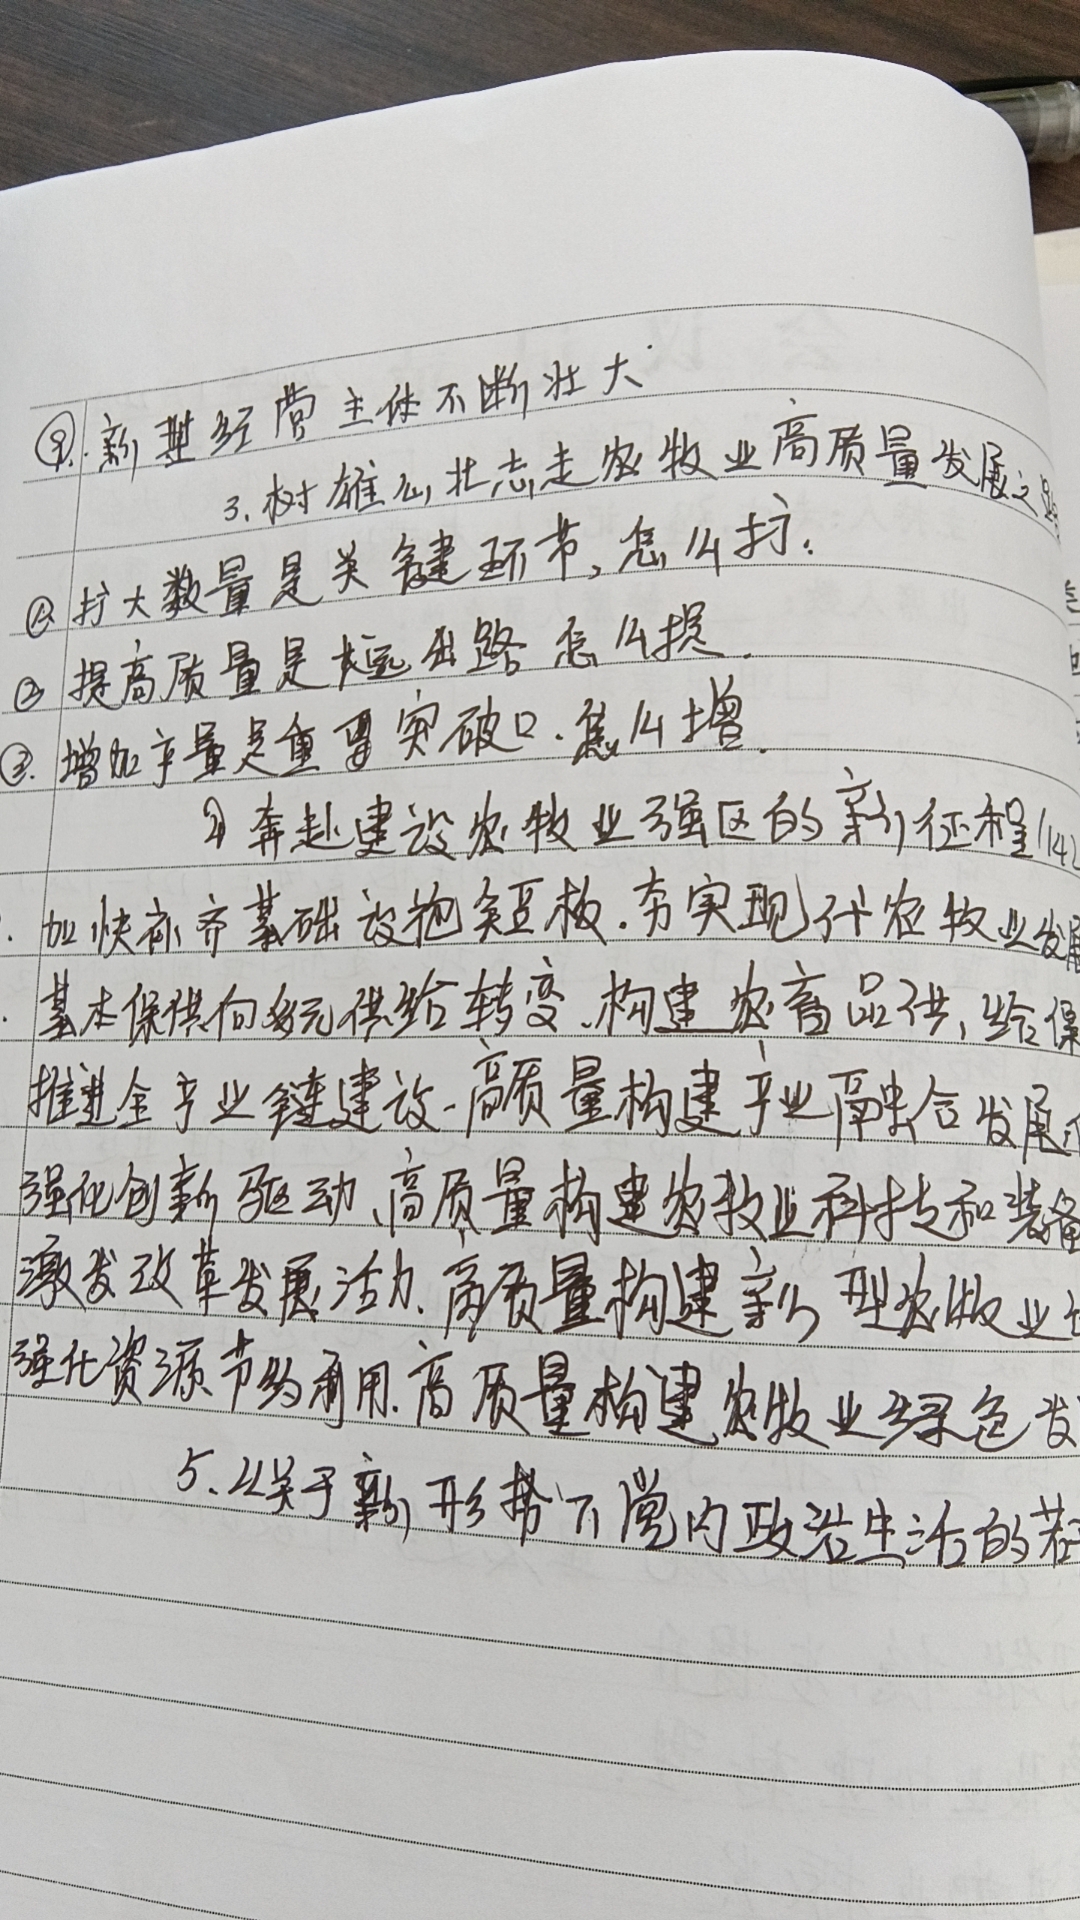 ⑧.新型经营主体不断壮大.
3.树雄心壮志走农牧业高质量发展之路
①扩大数量是关键环节,怎么扩.
②提高质量是长远出路怎么提.
③.增加产量是重要突破口.怎么增.
奔赴建设农牧业强区的新征程(14
.加快补齐基础设施短板.夯实现代农牧业发展
.基本保供向多元供给转变.构建农畜品供,给保
推进全产业链建设.高质量构建产业融合发展
强化创新驱动、高质量构建农牧业科技和装备
激发改革发展活力.高质量构建新型农牧业
强化资源节约利用.高质量构建农牧业绿色发
5.《关于新形势下党内政治生活的若